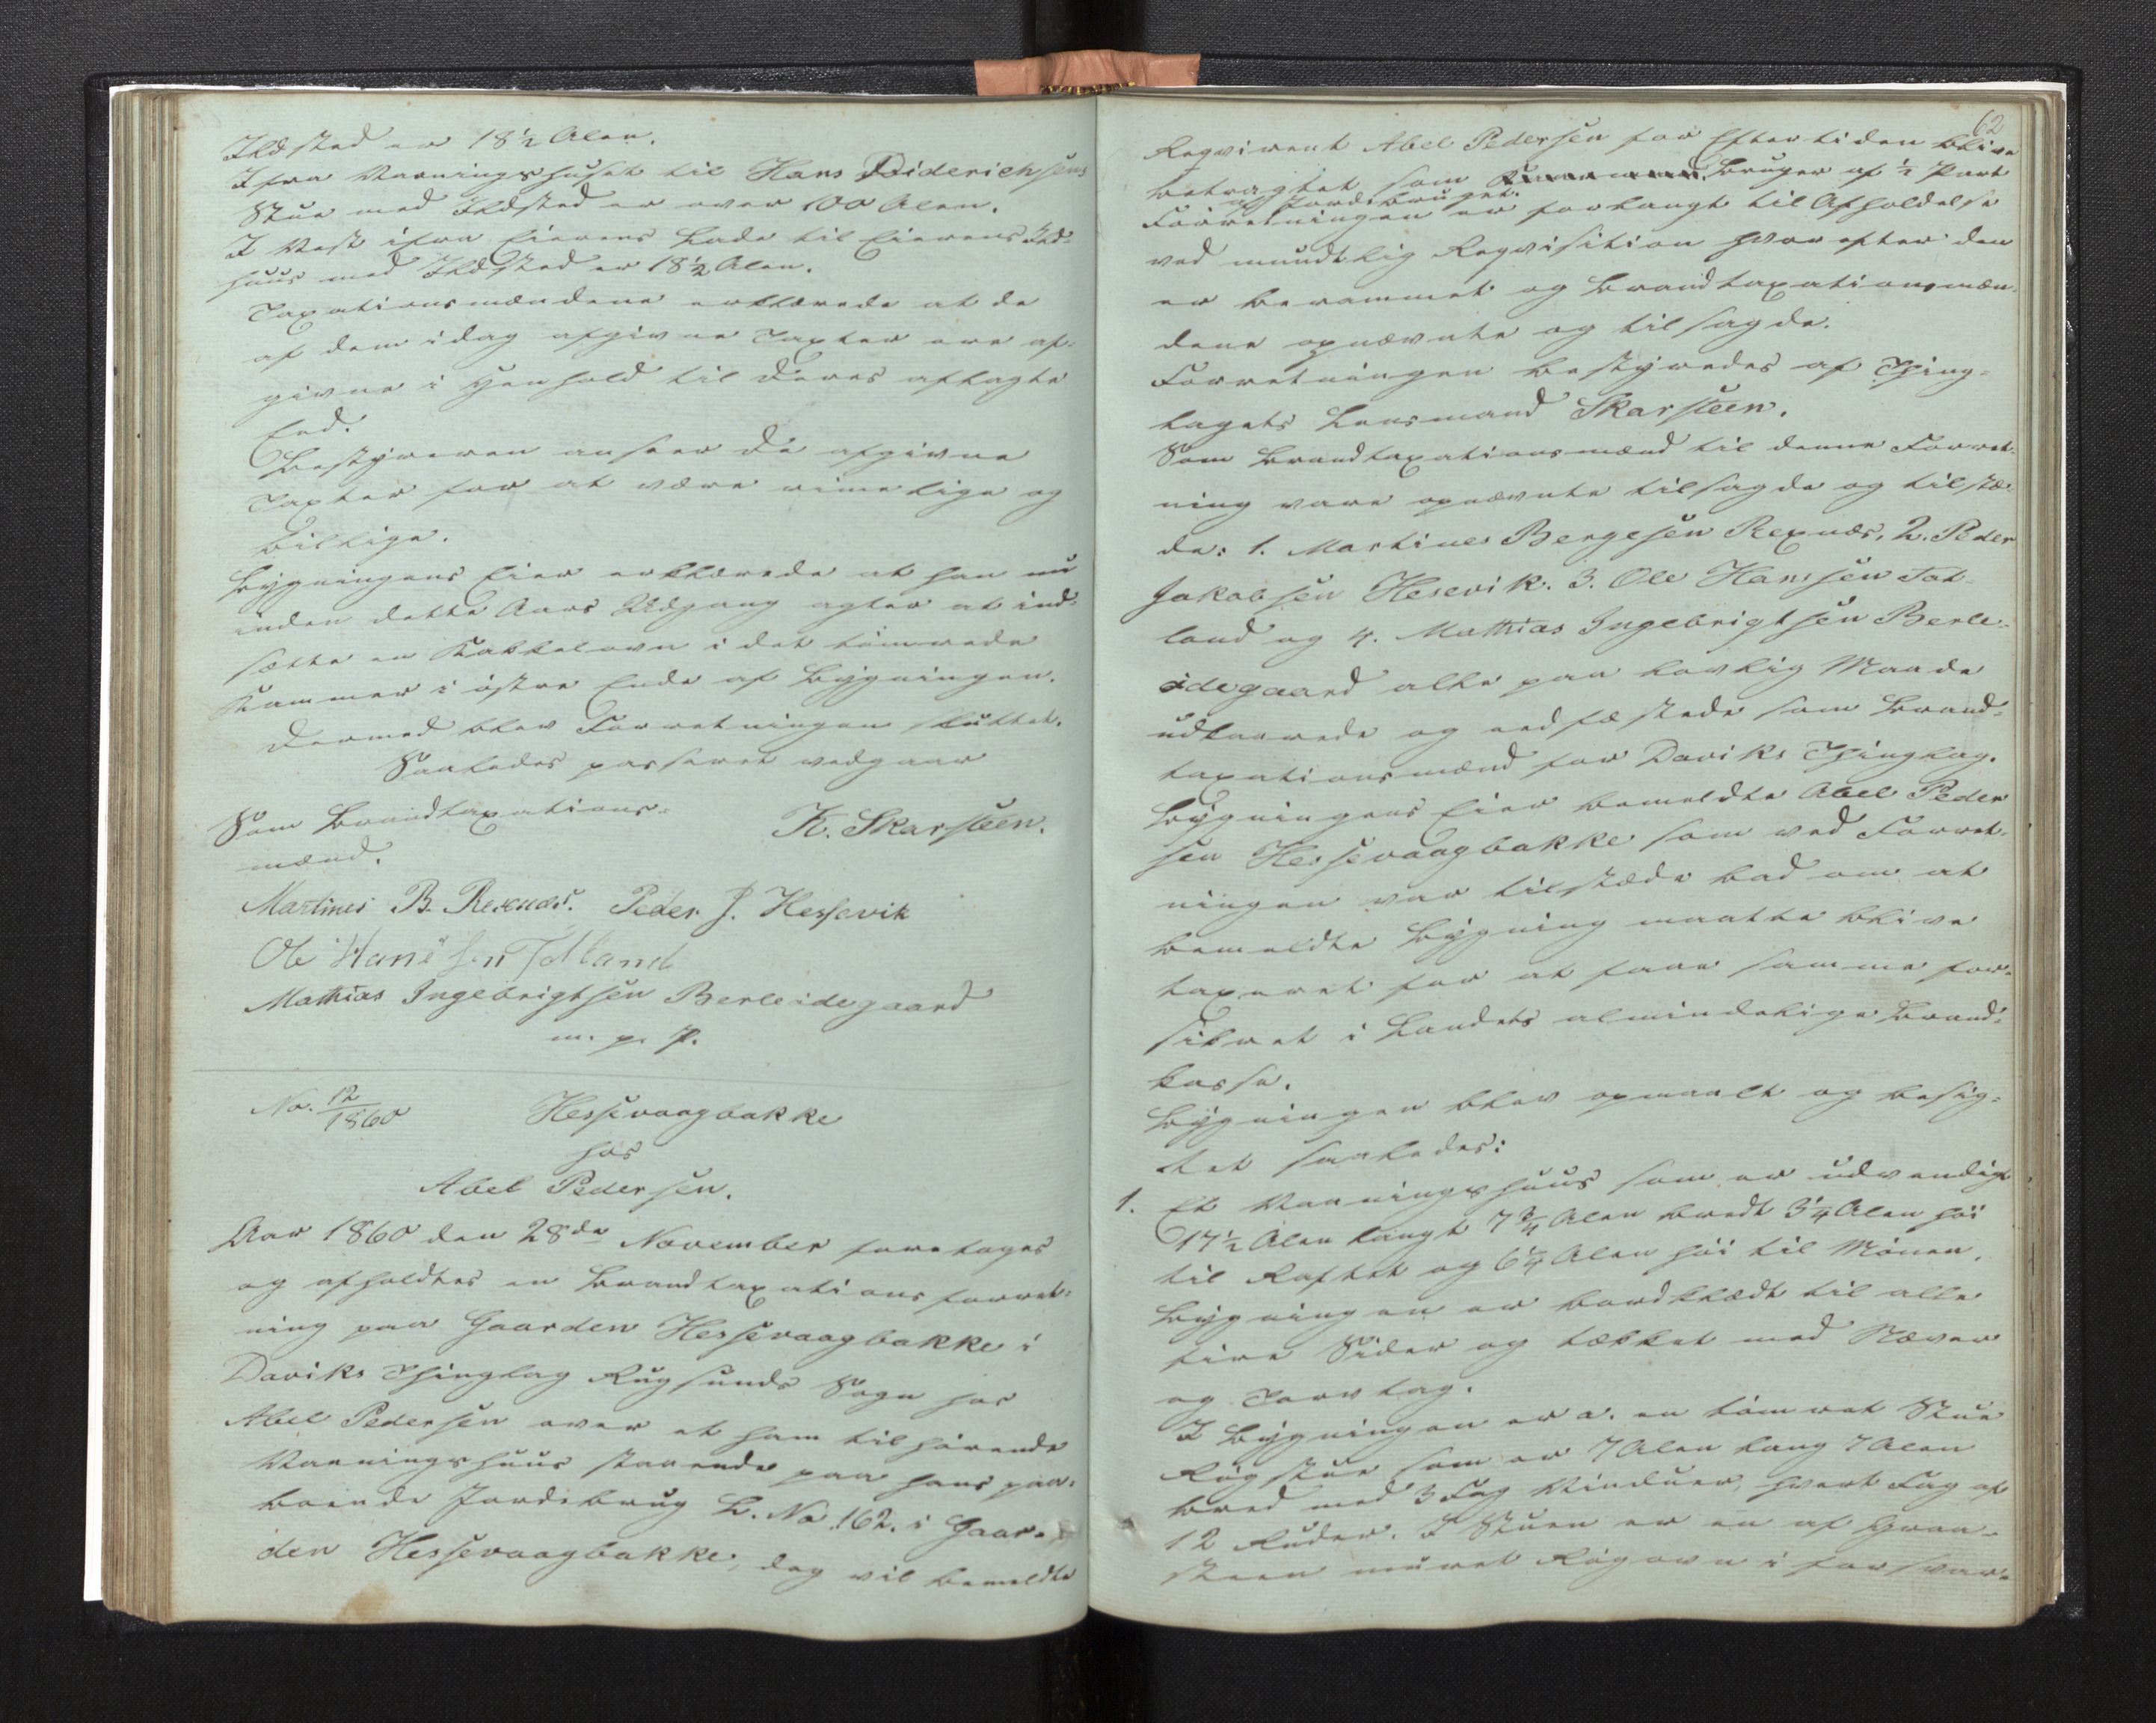 Ildsted er 18½ Alen.
Ifra Vaaningshuset til Hans Diderichsens
Stue med Ildsted er over 100 Alen.
I Vest ifra Eierens Lade til Eierens Ild-
huus med Ildsted er 18½ Alen.
Taxationsmændene erklærede at de
af dem idag afgivne Taxter ere af-
givne i Henhold til deres aflagte
Eed.
Bestyreren anseer de afgivne
Taxter for at være rimelige og
billige.
Bygningens Eier erklærede at han nu
inden dette Aars Udgang agter at ind-
sætte en Kakkelovn i det tømrede
Kammer i østre Ende af Bygningen.
Dermed blev Forretningen sluttet.
Saaledes passeret vedgaar
Som Brandtaxations-
mænd.
K. Skarsteen.
Martines B. Rexnæs. Peder J. Hessevik
Ole Hanssen Totland
Mathias Ingebrigtsen Berleødegaard
m. p. P.
No. 12/1860 Hessevaagbakke
hos
Abel Pedersen.
Aar 1860 den 28de November foretoges
og afholdtes en Brandtaxationsforret-
ning paa Gaarden Hessevaagbakke i
Daviks Thinglag Rugsunds Sogn hos
Abel Pedersen over et ham tilhørende
Vaaningshuus staaende paa hans paa-
boende Jordebrug L. No 162. i Gaar-
den Hessevaagbakke, dog vil bemeldte
62
Reqvirent Abel Pedersen for Eftertiden blive
betragtet som Bruger af ½ Part
af Jordebruget.
Forretningen er forlangt til Afholdelse
ved mundtlig Reqvisition hvorefter den
er berammet og Brandtaxationsmæn-
dene opnævnte og tilsagde.
Forretningen bestyredes af Thing-
lagets Lensmand Skarsteen.
Som Brandtaxationsmænd til denne Forret-
ning vare opnævnte tilsagde og tilstæ-
de: 1. Martines Bergesen Rexnæs, 2. Peder
Jakobsen Hesevik. 3. Ole Hanssen Tot-
land og 4. Mathias Ingebrigtsen Berle-
ødegaard alle paa lovlig Maade
udkaarede og eedfæstede som Brand-
taxationsmænd for Daviks Thinglag.
Bygningens Eier bemeldte Abel Peder
sen Hessevaagbakke som ved Forret-
ningen var tilstæde bad om at
bemeldte Bygning maatte blive
taxeret for at faae samme for-
sikret i Landets almindelige Brand-
kasse.
Bygningen blev opmaalt og besig-
tet saaledes:
1. Et Vaaningshuus som er udvendigt
17½ Alen langt 7¾ Alen bredt 3¼ Alen høi
til Raftet og 6¼ Alen høi til Mønen.
Bygningen er bordklædt til alle
fire Sider og tækket med Næver
og Torvtag.
I Bygningen er a. en tømret Stue
Røgstue som er 7 Alen lang 7 Alen
bred med 3 Fag Vinduer, hvert Fag af
12 Ruder. I Stuen er en af Graa-
steen muret Røgovn i forsvar-